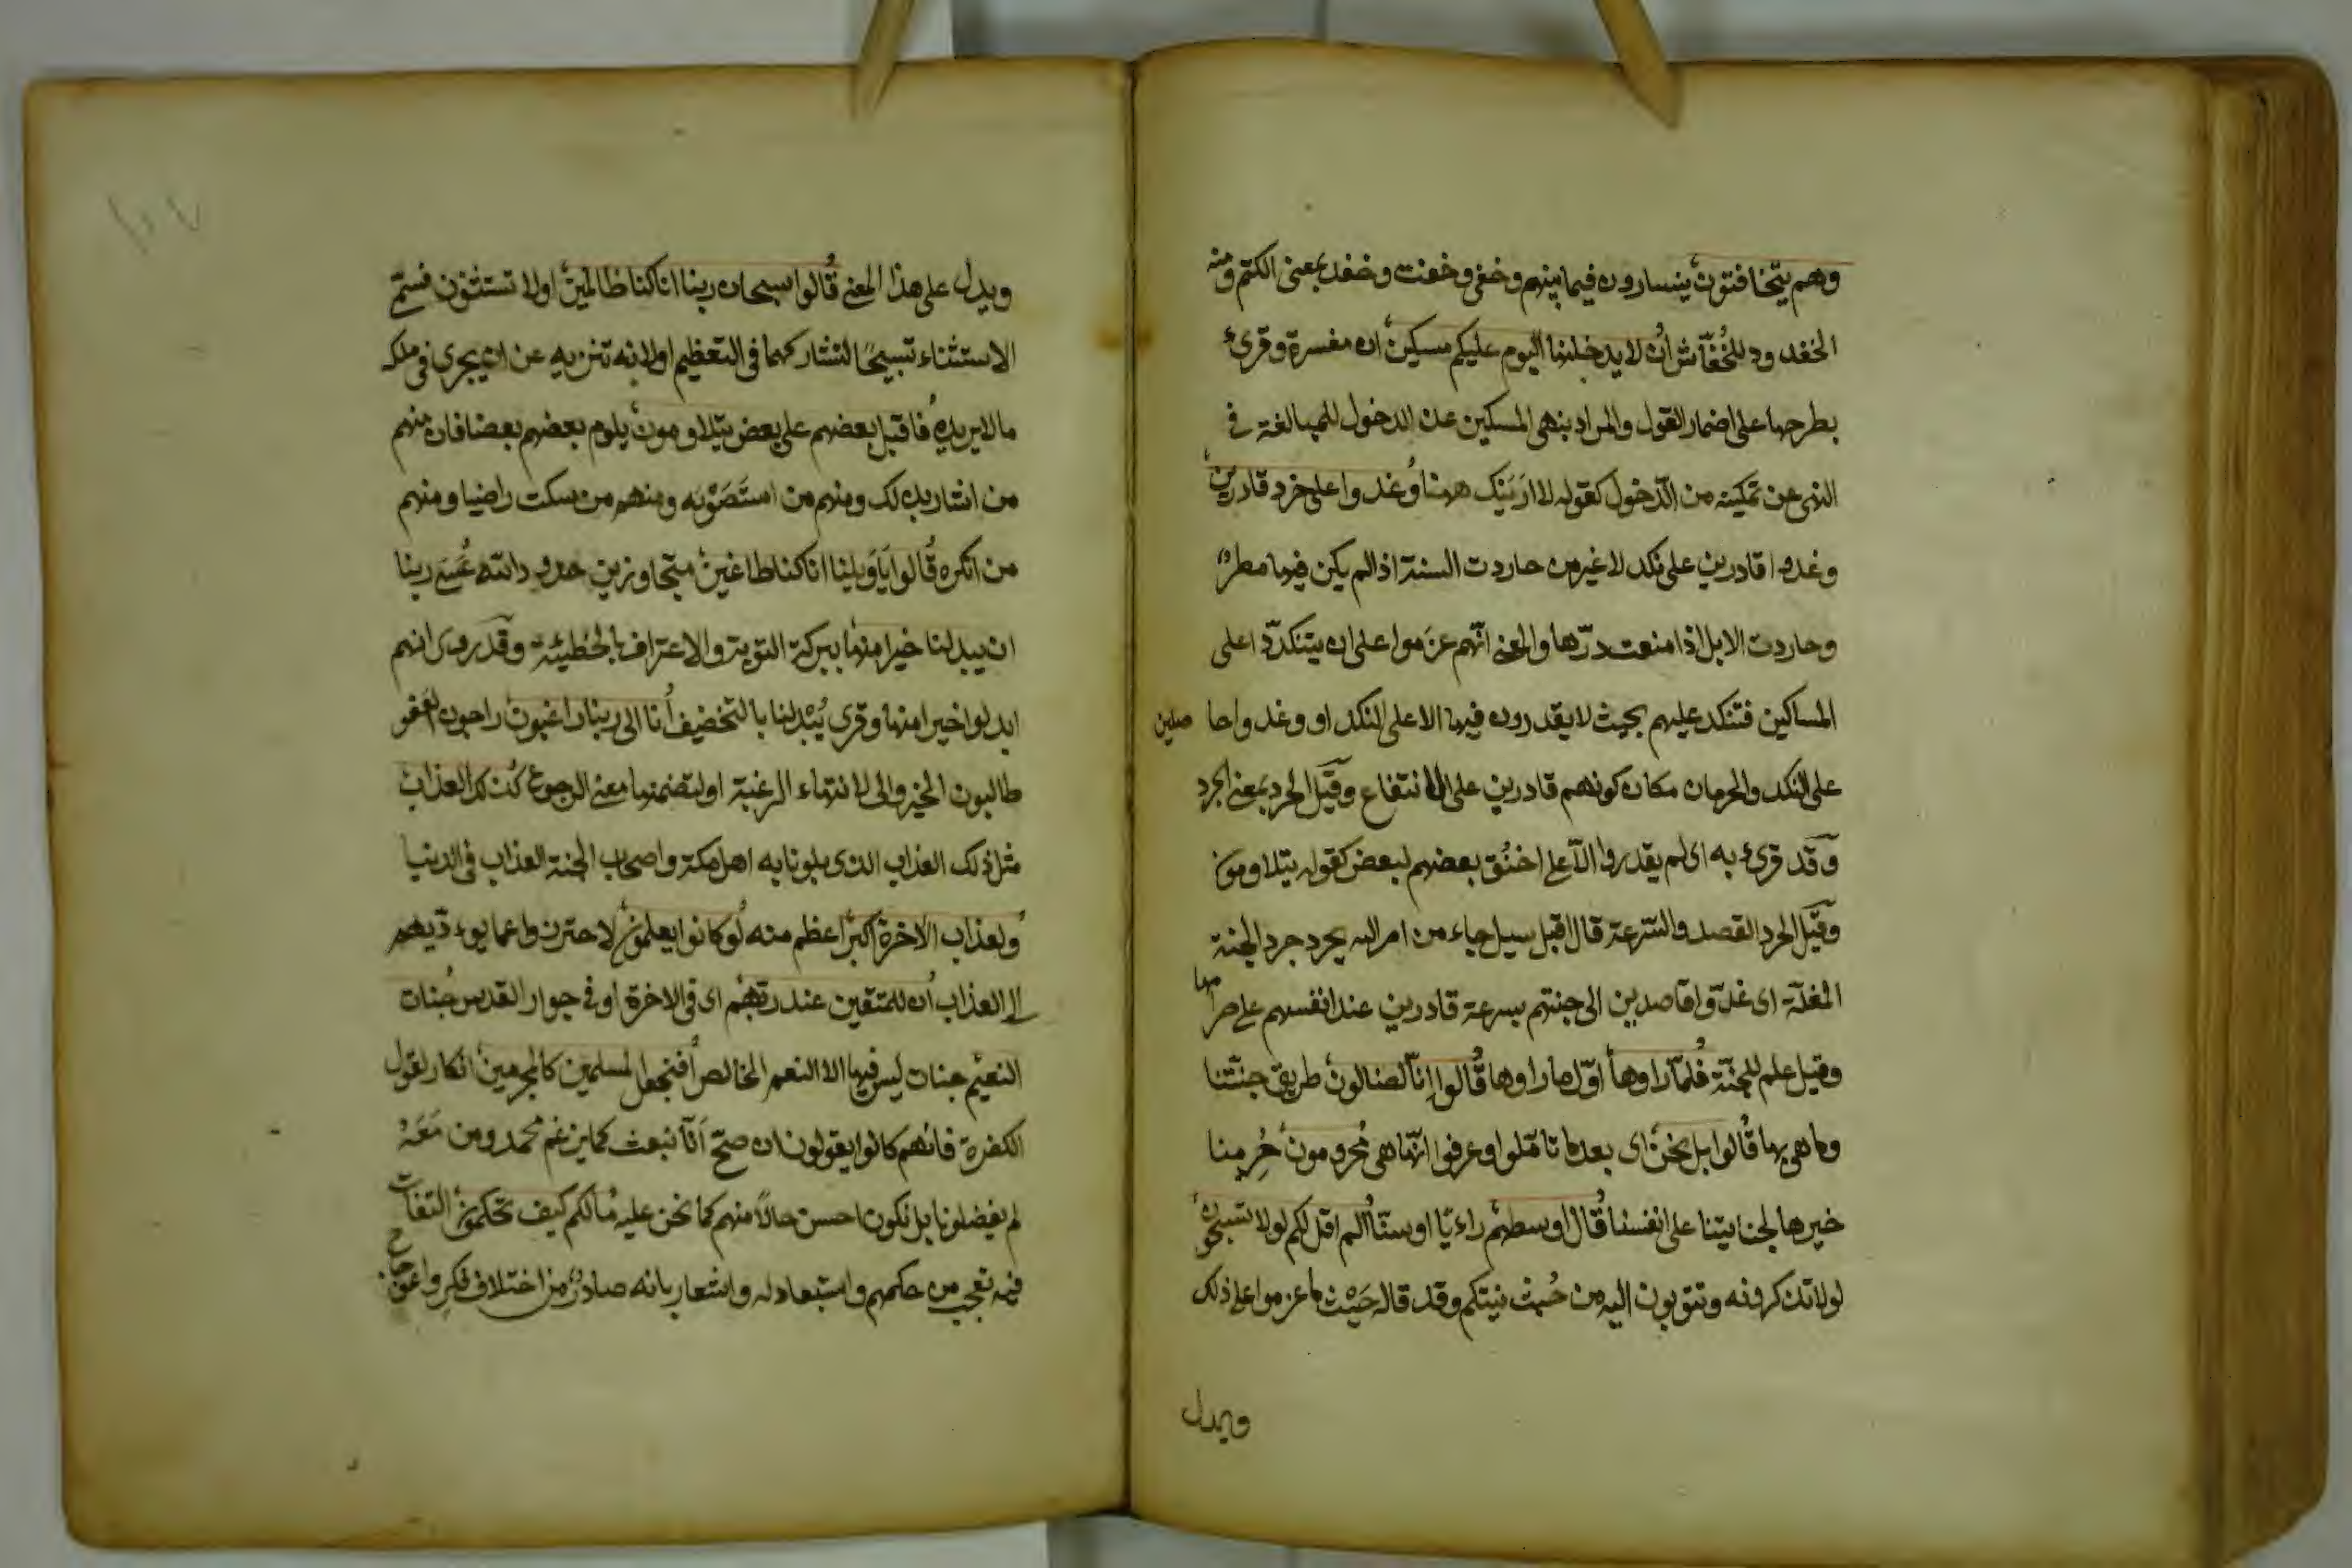 وهم يتخافتون يتسارون فيما بينهم وخفى وخفت وخفد بمعنى الكتم ومنه
الخفدود للخُفّاش أن لا يدخلنها اليوم عليكم مسكين ان مفسرة وقرئ
بطرحها على اضمار القول والمراد بنهى المسكين عن الدخول للمبالغة في
النهى عن تمكينه من الدّخول كقوله لا ارَيَنك ههنا وغدوا على حرد قادرين
وغدوا قادرين على نكد لا غير من حاردت السنة اذا لم يكن فيها مطر
وحاردت الابل اذا منعت درّها والمعنى انّهم عزموا على ان يتنكدّوا على
المساكين فتنكد عليهم بحيث لا يقدرون فيها الا على النكد او وغدوا حاصلين
على النكد والحرمان مكان كونهم قادرين على الانتفاع وقيل الحرد بمعنى الحرد
وقد قرئ به اى لم يقدروا الّا على حنق بعضهم لبعض كقوله يتلاومون
وقيل الحرد القصد والسّرعة قال اقبل سيل جاء من امر الله يحرد حرد الجنة
المغلّة اى غدوا قاصدين الى جنتهم بسرعة قادرين عند انفسهم على صرامها
وقيل علم للجنّة فلمّا راوها اوّل ما راوها قالوا اِنّا لضالون طريق جنّتنا
وما هى بها قالوا بل نحن اى بعد ما تأمّلوا وعرفوا انّها هى محرومون حُرِمنا
خيرها لجنايتنا على انفسنا قال اوسطهم راءيًا او سنّا الم اقل لكم لولا تسبحون
لولا تذكرونه وتتوبون اليه من خُبث نيتكم وقد قاله حَيْث ما عزموا على ذلك
ويدل
ويدل على هذا المعنى قالوا سبحان ربنا انا كنا ظالمين او لا تستثنون فسمّى
الاستثناء تسبيحًا لتشاركهما فى التعظيم او لانه تنزيه عن ان يجرى فى ملكه
ما لا يريده فاقبل بعضهم على بعض يتلاومون يلوم بعضهم بعضا فان منهم
من اشار بذلك ومنهم من استَصَوْبه ومنهم من سكت راضيا ومنهم
من انكره قالوا يَا وَيلنا انا كنا طاغين متجاوزين حدود الله عَسَى ربنا
ان يبدلنا خيرا منها ببركة التوبة والاعتراف بالخطيئة وقد روى انهم
ابدلوا خيرا منها وقرى يُبْدلنا بالتخفيف اَنا الى ربنا راغبون راجون العفو
طالبون الخير والى لانتهاء الرغبة او لتضمنها معنى الرجوع كذلك العذاب
مثل ذلك العذاب الذى بلونا به اهل مكة واصحاب الجنة العذاب فى الدنيا
ولعذاب الاخرة اكبر اعظم منه لو كانوا يعلمون لاحترزوا عما يوءدّيهم
الى العذاب ان للمتقين عند ربهم اى فى الاخرة او فى جوار القدس جنات
النعيم جنات ليس فيها الا النعم الخالص افنجعل المسلمين كالمجرمين انكار لقول
الكفرة فانهم كانوا يقولون ان صحّ اَنّا نبعث كما يزعم محمد ومن مَعَهُ
لم يفضلونا بل نكون احسن حالاً منهم كما نحن عليه ما لكم كيف تحكمون التفات
فيه تعجب من حكمهم واستبعاد له واشعار بانه صادر من اختلاف فكر واعوجاج